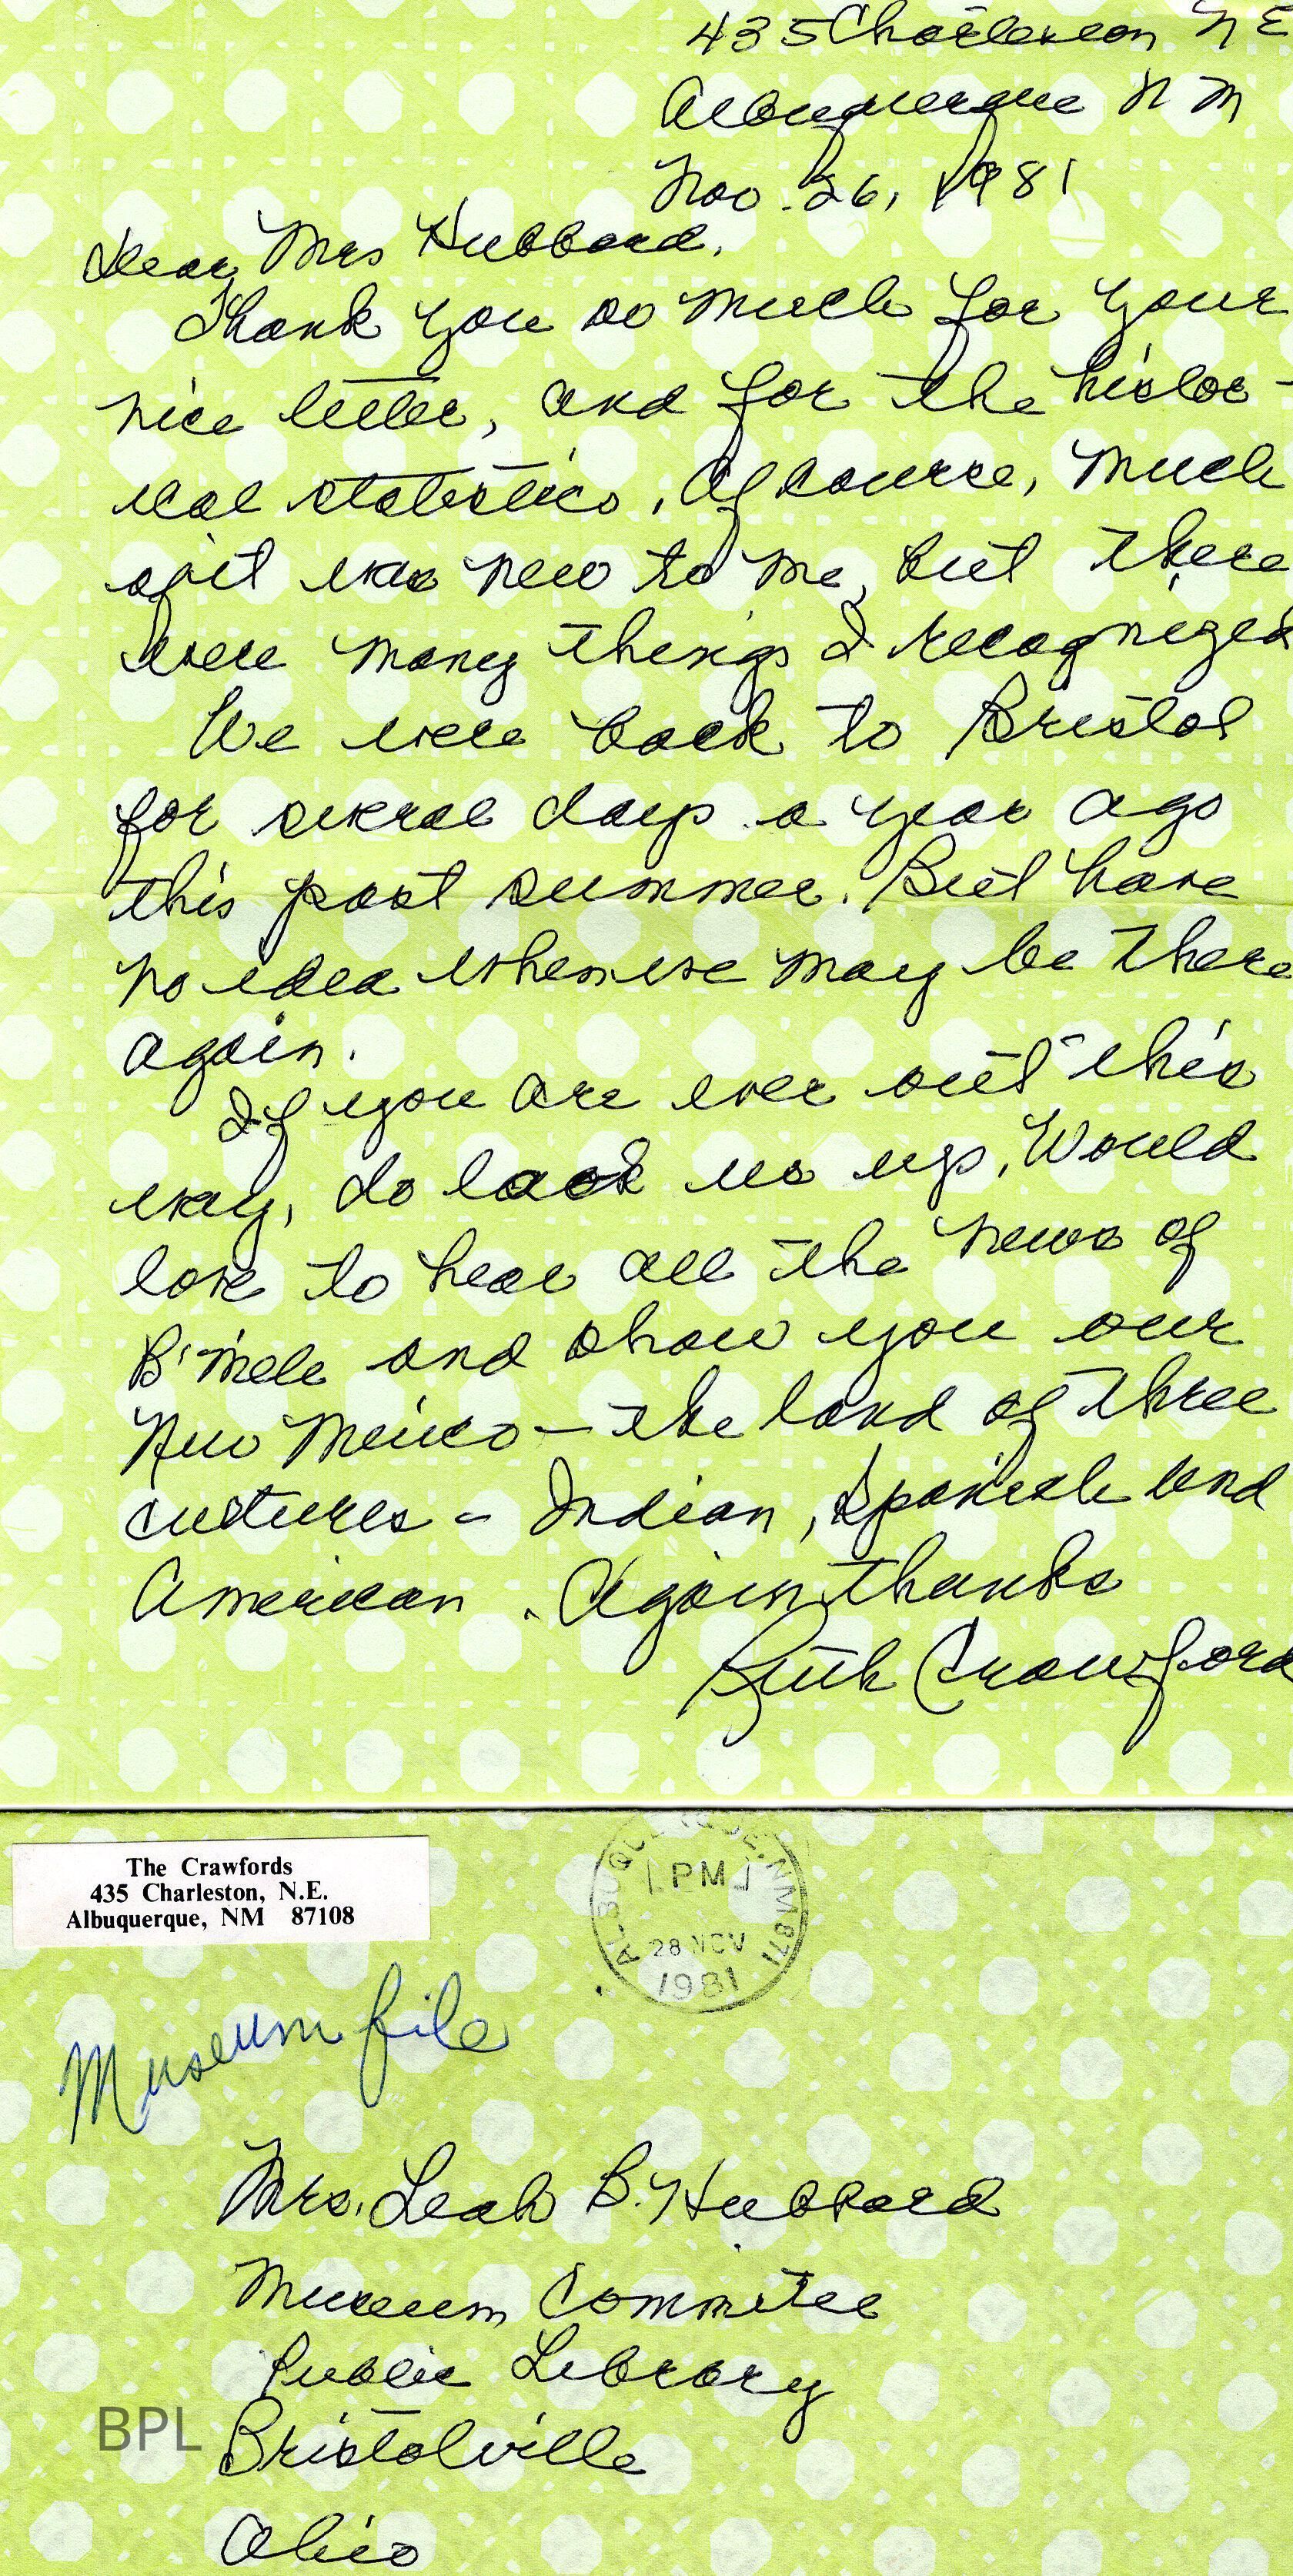 435 Charleston NE
Albuquerque N M
Nov. 26, 1981
Dear Mrs Hubbard,
Thank you so much for your
nice letter, and for the histor-
ical statistics. Of course, much
of it was new to me, but there
were many things I recognized
We were back to Bristol
for several days a year ago
this past summer. But have
no idea when we may be there
again.
If you are ever out this
way, do look us up. Would
love to hear all the news of
B'ville and show you our
New Mexico — the land of three
cultures - Indian, Spanish and
American. Again, thanks
Ruth Crawford
The Crawfords
435 Charleston, N.E.
Albuquerque, NM 87108
ALBUQUERQUE, NM 871
PM
28 NOV
1981
Museum file
Mrs. Leah B. Hubbard
Museum Committee
Public Library
BPL
Bristolville
Ohio